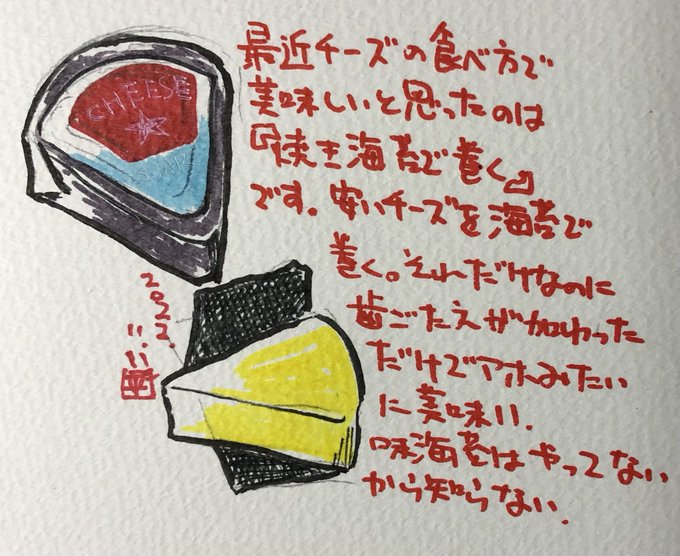 最近チーズの食べ方で
美味しいと思ったのは
『焼き海苔で巻く』
です。安いチーズを海苔で
巻く。それだけなのに
歯ごたえが加わった
だけでアホみたい
に美味い.
味海苔はやってない
から知らない.
CHEESE
2022.
11.11